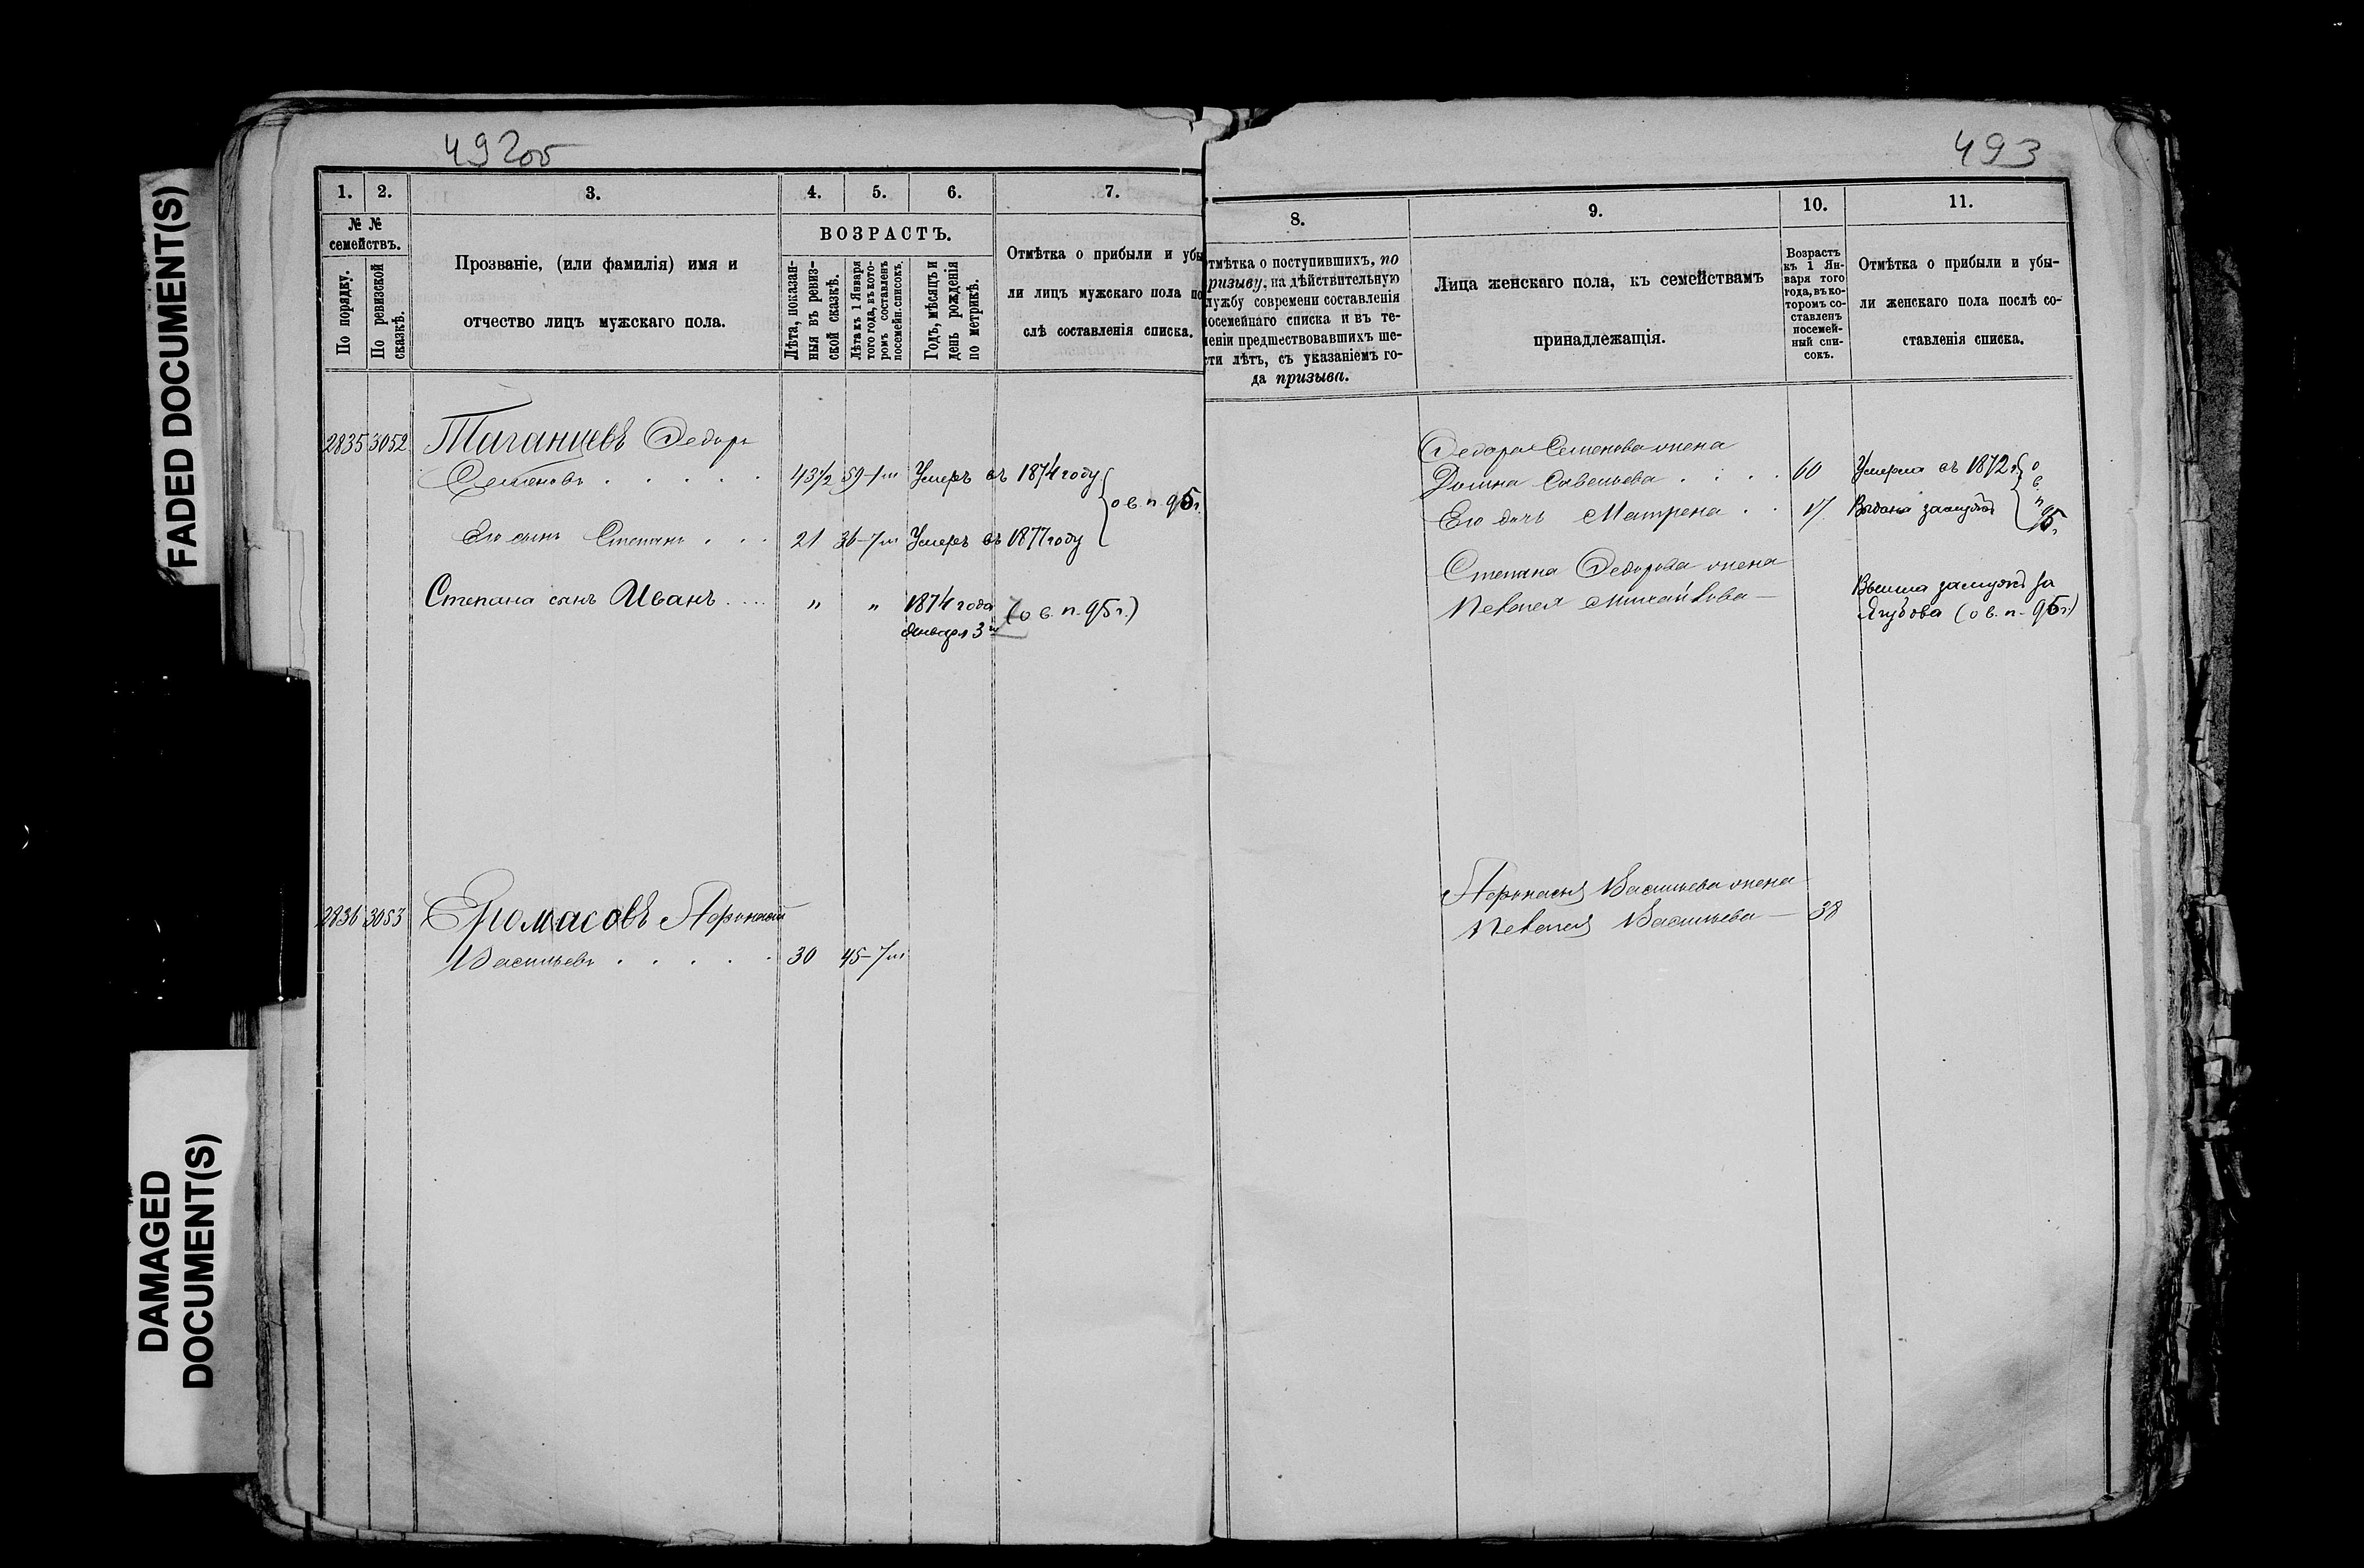 FADED DOCUMENT(S)
DAMAGED
DOCUMENT(S)
492об
1. 2. 3. 4. 5. 6. 7.
№ №
семействъ.
По порядку.
По ревизской
сказкѣ.
Прозваніе, (или фамилія) имя и
отчество лицъ мужскаго пола.
ВОЗРАСТЪ.
Лѣта, показан-
ныя въ ревиз-
ской сказкѣ.
Лѣта къ 1 Января
того года, въ кото-
ромъ составленъ
посемейн. списокъ.
Годъ, мѣсяцъ и
день рожденія
по метрикѣ.
Отмѣтка о прибыли и убы
ли лицъ мужскаго пола по
слѣ составленія списка.
2835 3052 Таганцевъ Федоръ
Семеновъ . . . . . 43½ 59-1м Умеръ въ 1874 году
о в. п. 95г.
Его сынъ Степанъ . . . 21 36-7м Умеръ въ 1877 году
Степана сынъ Иванъ . . . . " " 1874 года
Января 3го (о в. п. 95г.)
2836 3053 Афонасій
Васильевъ . . . . . 30 45-7м
493
8. 9. 10. 11.
тмѣтка о поступившихъ, по
ризыву, на дѣйствительную
лужбу современи составленія
посемейнаго списка и въ те-
ченіи предшествовавшихъ ше-
сти лѣтъ, съ указаніемъ го-
да призыва.
Лица женскаго пола, къ семействамъ
принадлежащія.
Возрастъ
къ 1 Ян-
варя того
года, въ ко-
торомъ со-
ставленъ
посемей-
ный спи-
сокъ.
Отмѣтка о прибыли и убы-
ли женскаго пола послѣ со-
ставленія списка.
Федора Семенова жена
Домна Савельева . . . . 60 Умерла въ 1872г.
Его дочь Матрена . . 17 Выдана замужъ
о в. п. 95г.
Степана Федорова жена
Пелагея Михайлова — Вышла замужъ за
Ягубова (о в. п. 95г.)
Афонасія Васильева жена
Пелагея Васильева — 38